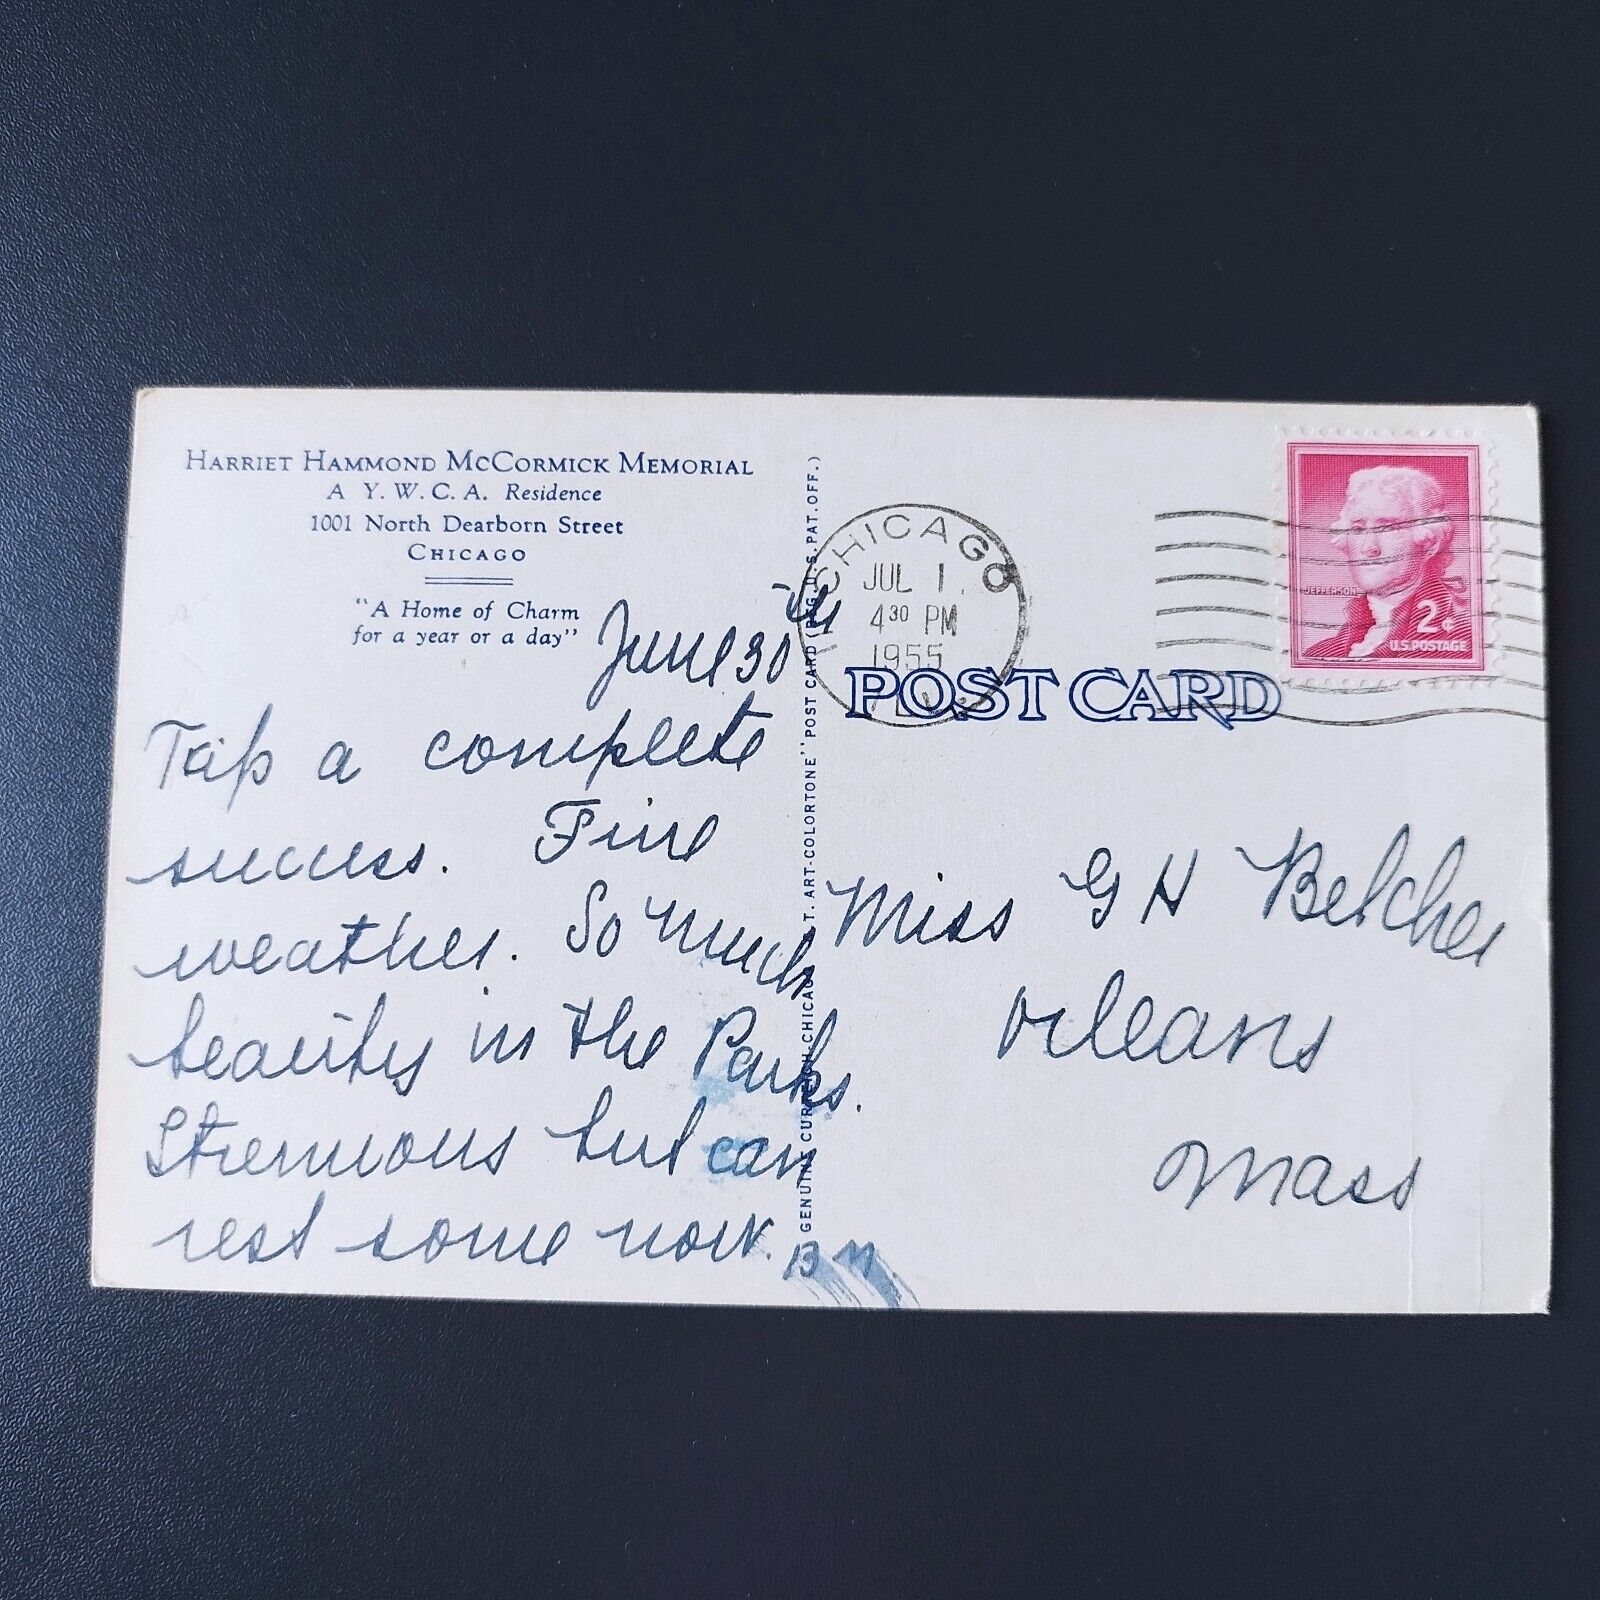 HARRIET HAMMOND MCCORMICK MEMORIAL
A Y. W. C. A. Residence
1001 North Dearborn Street
CHICAGO
"A Home of Charm
for a year or a day"
June 30th
Trip a complete
success. Fine
weather. So much
beauity in the Parks.
Strenuous but can
rest some now. B M
GENUINE CURTEICH-CHICAGO "C.T. ART-COLORTONE" POST CARD (REG. U.S. PAT. OFF.)
CHICAGO
JUL 1.
4 30 PM
1955
JEFFERSON
2¢
U.S. POSTAGE
POST CARD
Miss G H Belcher
Orleans
Mass